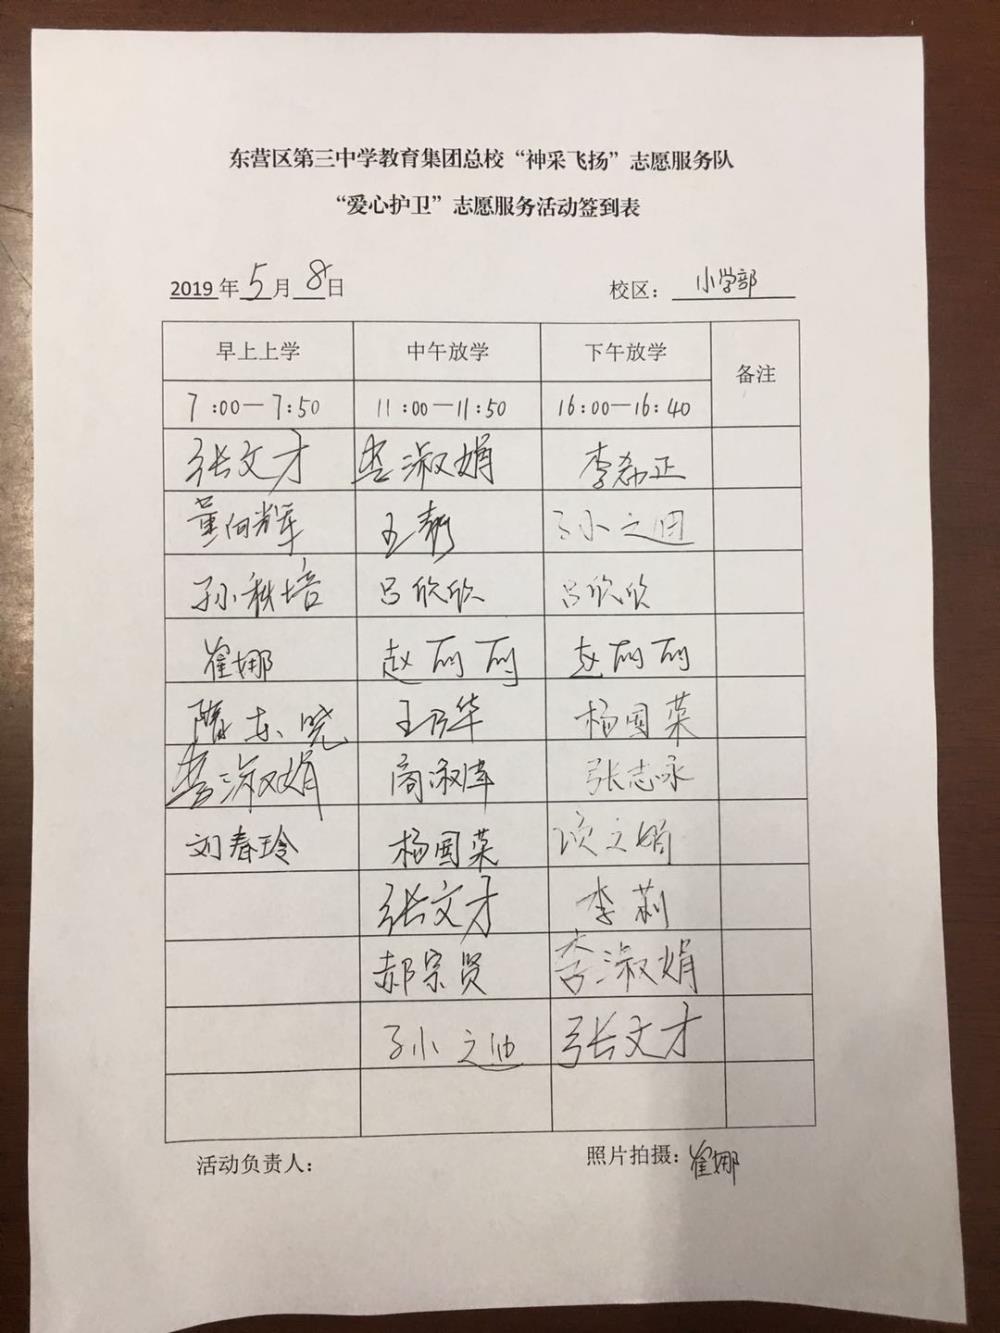 东营区第三中学教育集团总校“神采飞扬”志愿服务队
“爱心护卫”志愿服务活动签到表
2019年5月8日 校区：小学部
早上上学 中午放学 下午放学 备注
7:00—7:50 11:00—11:50 16:00—16:40
张文才 李淑娟 李希正
董向辉 王 孙之
孙秋培 吕欣欣 吕欣欣
崔娜 赵丽丽 赵丽丽
隋东晓 王乃华 杨国菜
李淑娟 商淑 张志咏
刘春玲 杨国菜 之娟
张文才 李莉
郝宗贤 李淑娟
孙之 张文才
活动负责人： 照片拍摄：崔娜